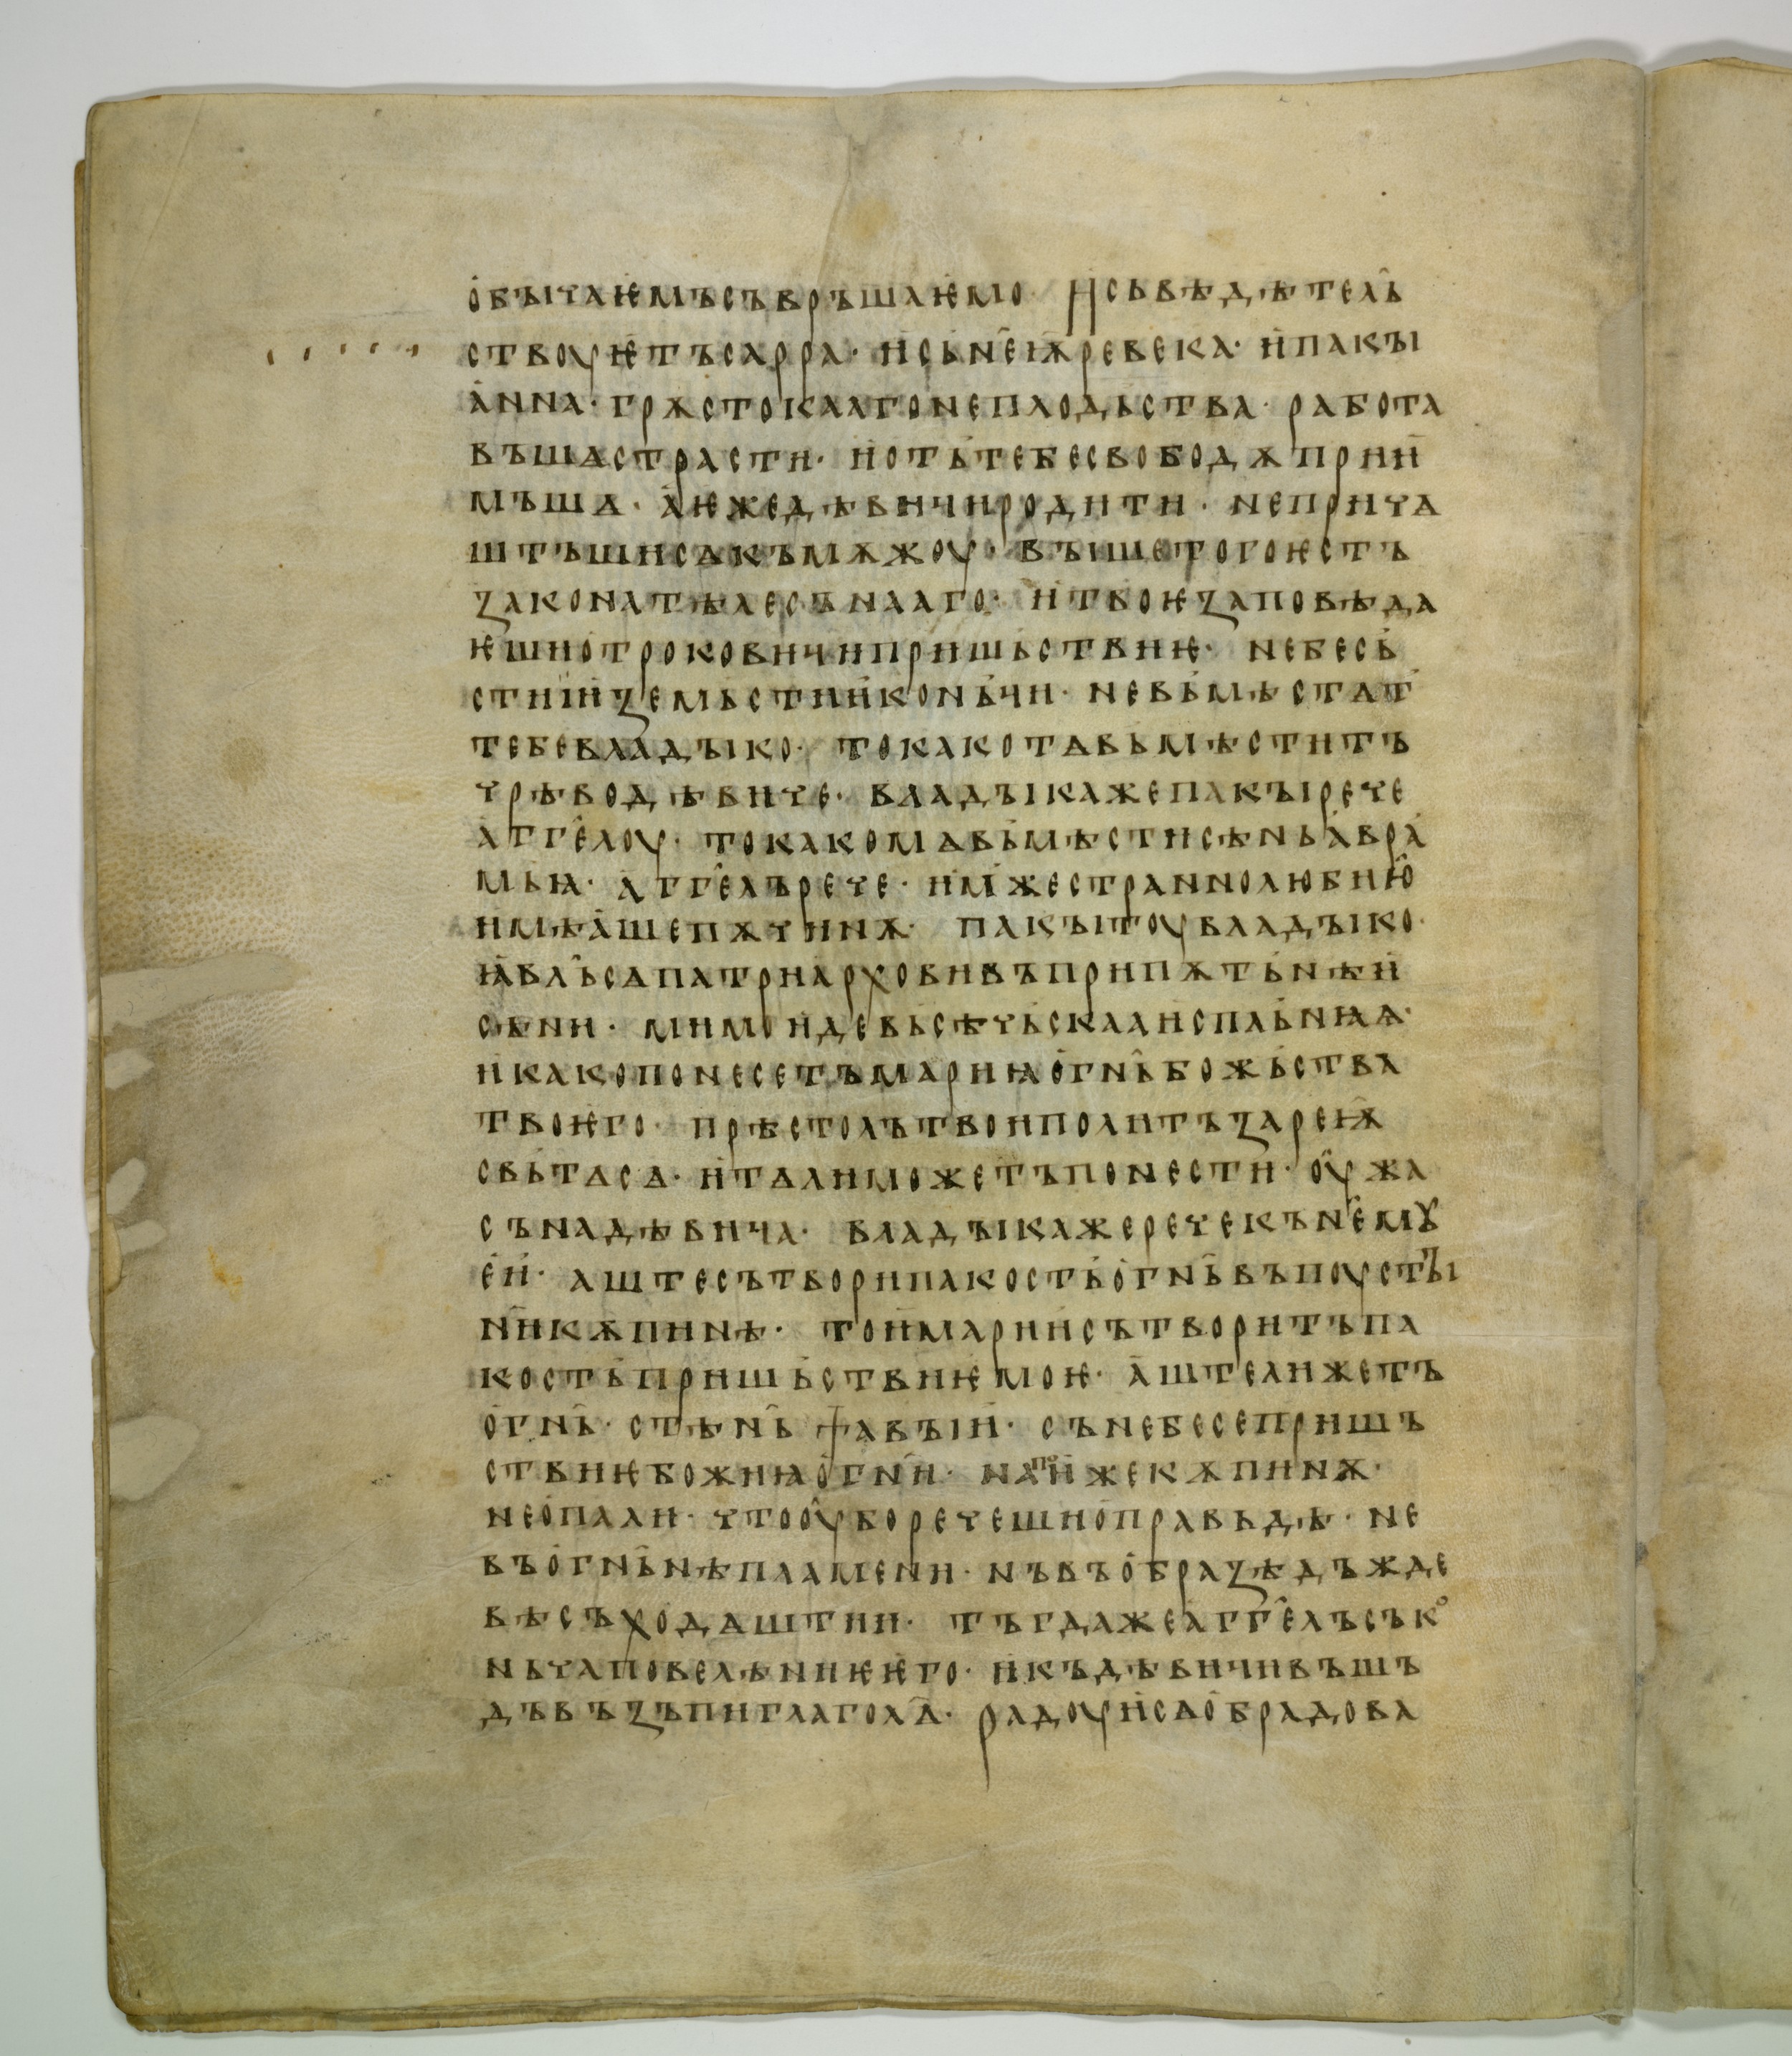 обычаѥмъсъврьшаѥмо· Исъвѣдѣтел҄ь
ствоуѥтъсарра· исьн҄еѭревека· ипакы
анна· грѫстокааꙵгонеплодьства· работа
въшѧстрасти· иотьтебесвободѫприи
мъшѧ· аѥжедѣвичиродити· неприча
штьшисѧкъмѫжоу· вышетогоѥстъ
законатѣлесънааго· итвоѥзаповѣда
ѥшиотроковичипришьствиѥ· небесь
стиіиземьстииконьчи· невьмѣстѧт
тебевладыко· токакотѧвьмѣститъ
чрѣводѣвиче· владыкажепакырече
аггелоу· токакомѧвьмѣстисѣньавра
мьꙗ· аггелърече· имьжестраннолюбию
имѣашепѫчинѫ· пакытоувладыко·
ꙗвл҄ьсѧпатриарховивъприпѫтьнѣи
сѣни· мимоидевьсѣчьскаꙗиспльнꙗѩ·
икакопонесетъмариꙗогн҄ьбожьства
твоѥго· прѣстолътвоиполитъзареѭ
свьтѧсѧ· итѧлиможетъпонести· оужа
сънадѣвича· владыкажеречекън҄ему
еи· аштесътворипакостьогн҄ьвъпоусты
н҄икѫпинѣ· тоимариисътворитъпа
костьпришьствиѥмоѥ· аштелижетъ
огн҄ь· стѣн҄ь ѳавыи· сънебесепришъ
ствиѥбожиꙗогн҄и· напоижекѫпинѫ·
неопали· чтооуборечешиоправьдѣ· не
въогн҄ьнѣпламени· нъвъобразѣдъжде
вѣсъходѧштии· тъгдажеаггелъсъко
ньчаповелѣниѥѥго· икъдѣвичивъшъ
дъвъзъпиглагол҄ѧ· радоуисѧобрадова